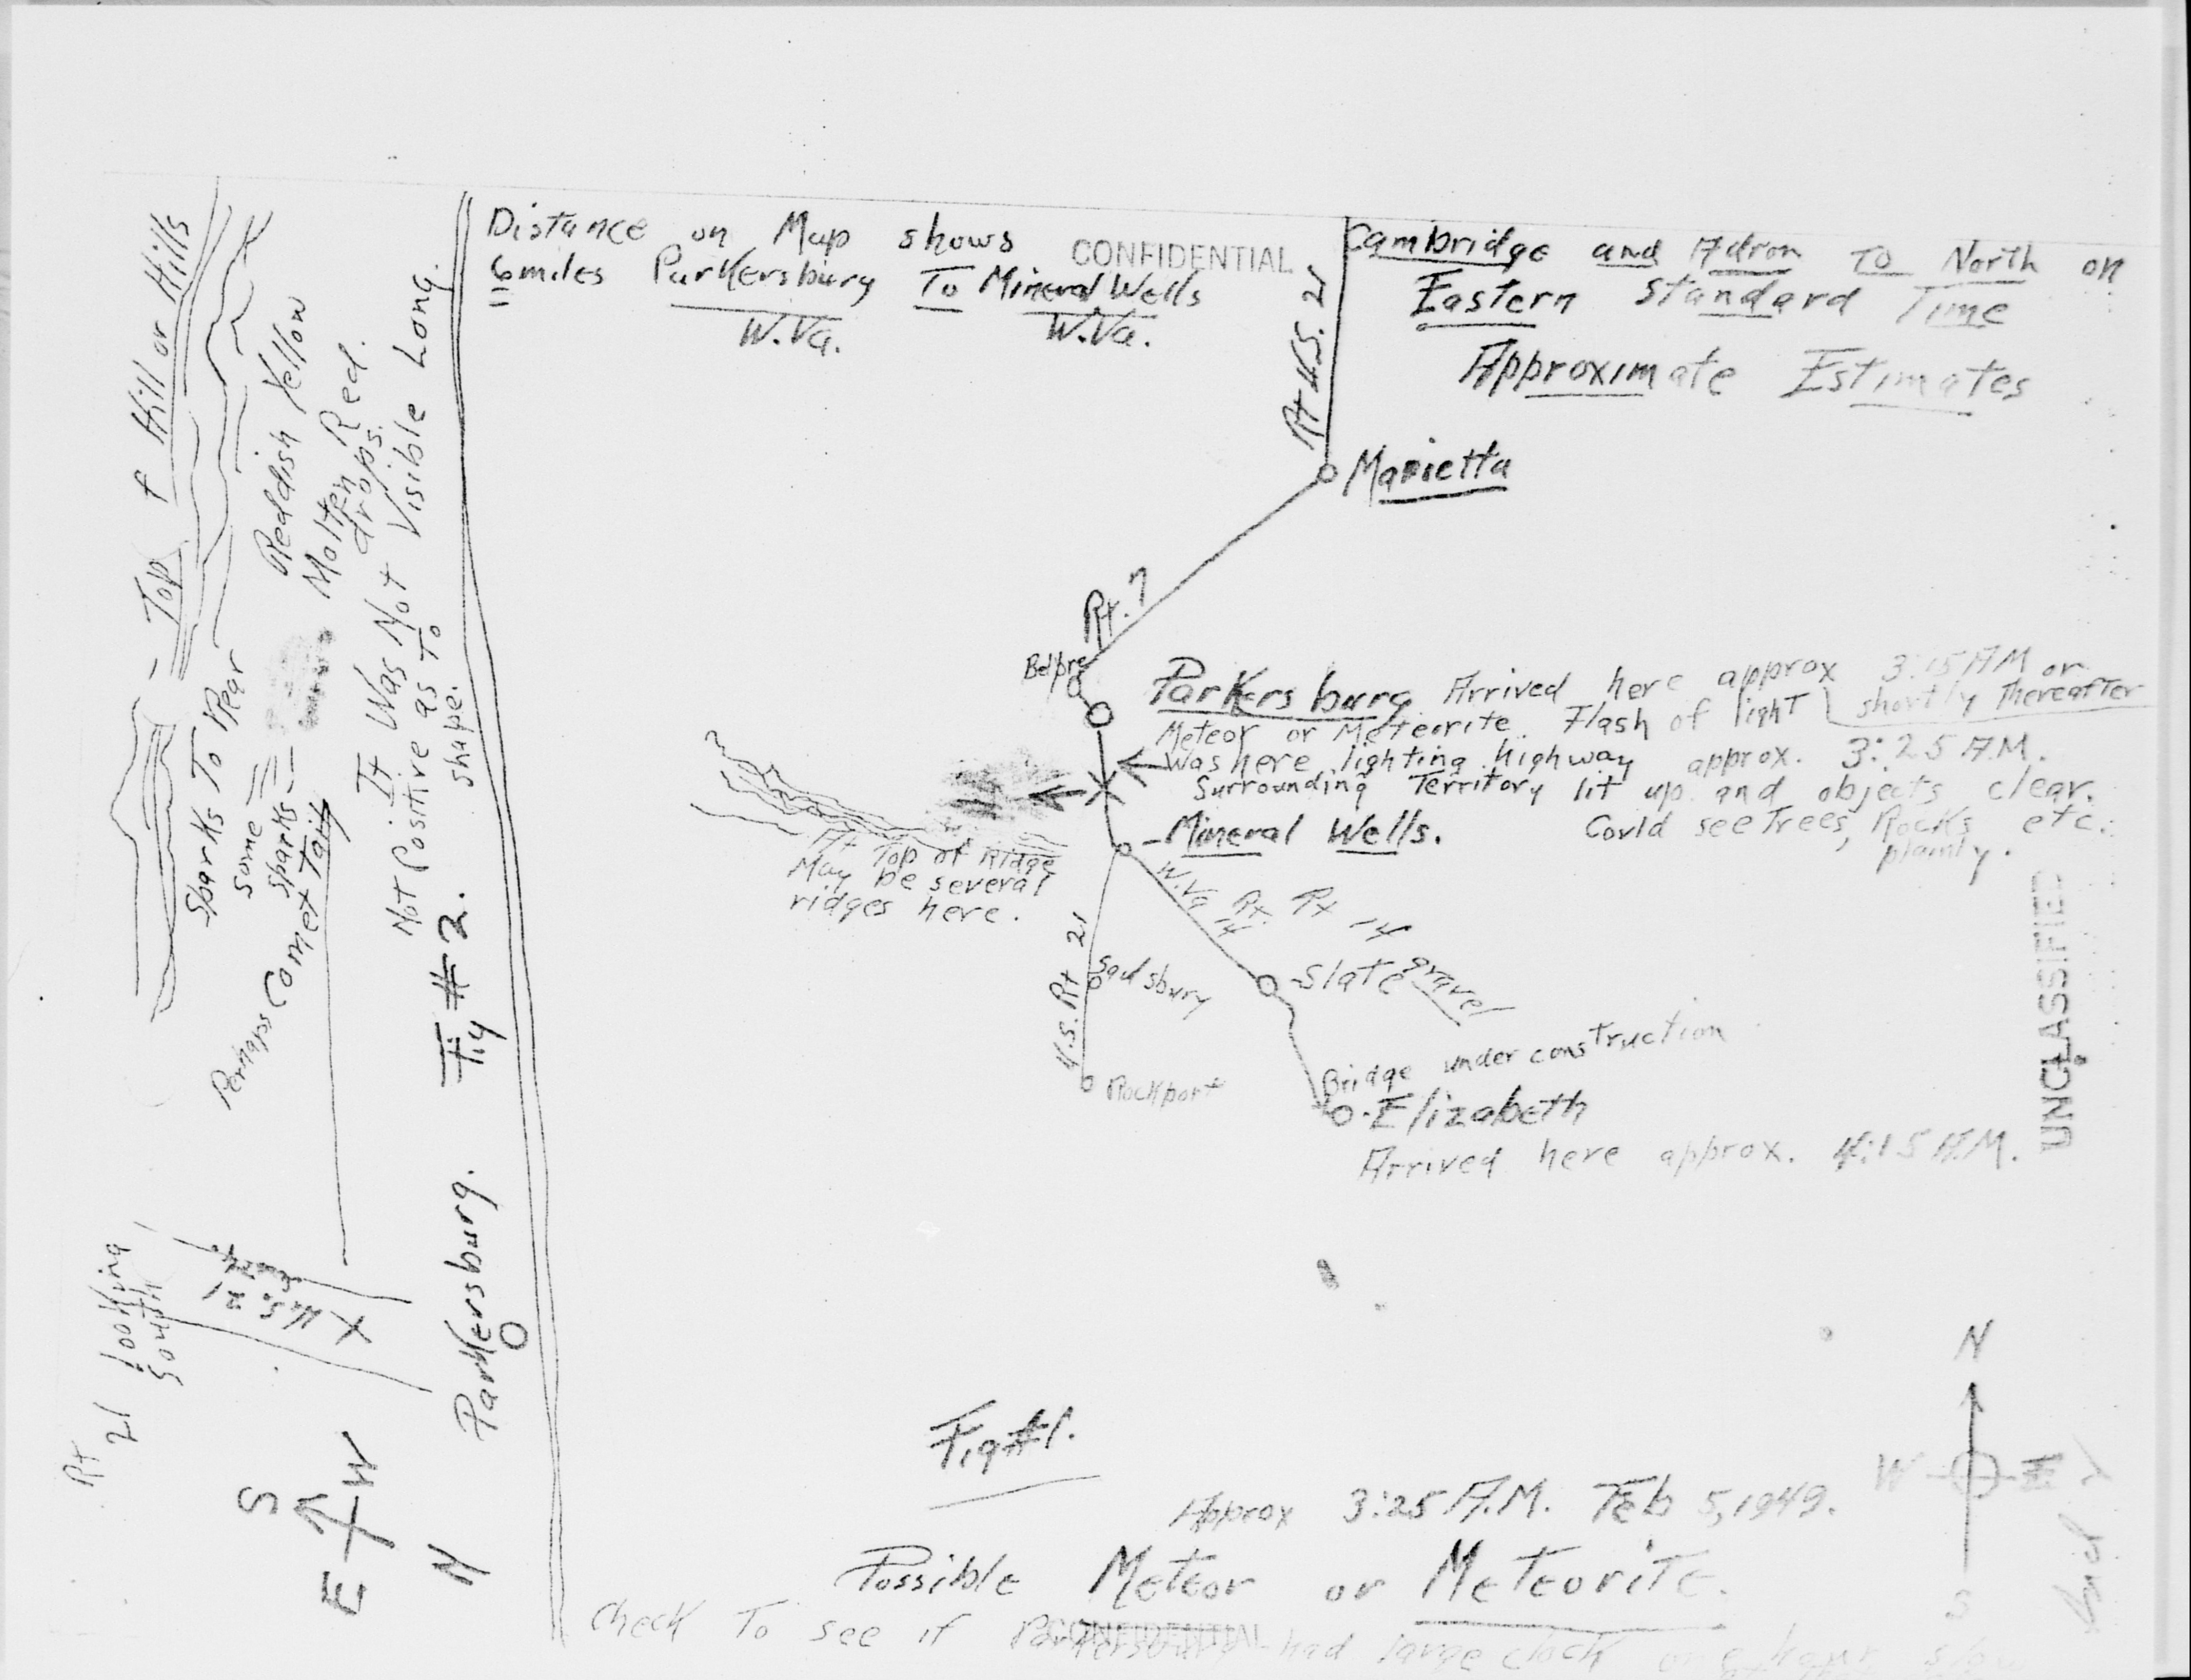 Distance on Map shows
6 miles Parkersburg To Mineral Wells
W.Va. W.Va.
CONFIDENTIAL
Cambridge and To North on
Eastern Standard Time
Approximate Estimates
Rt U.S. 21
Marietta
Rt. 7
Belpre
Parkersburg Arrived here approx 3:15 A.M or
shortly thereafter
Meteor or Meteorite. Flash of light
was here lighting highway approx. 3:25 A.M.
Surrounding Territory lit up and objects clear.
Could see Trees, Rocks etc.
plainly.
Mineral Wells.
At Top of Ridge
May be several
ridges here.
W.Va Rt. 14
Rt 14
gravel
U.S. Rt 21
Slate
Rockport
Bridge under construction
Elizabeth
Arrived here approx. 4:15 A.M.
UNCLASSIFIED
Fig #1.
Approx 3:25 A.M. Feb 5, 1949.
Possible Meteor or Meteorite.
Check To see if had large clock
CONFIDENTIAL
N
W
S
Top f Hill or Hills
Reddish Yellow
Molten Red
drops.
Sparks To Rear
Some
Sparks
Perhaps Comet Tail
It Was Not Visible Long.
Not Positive as To
shape.
Fig # 2.
Parkersburg.
Rt 21 looking South
U.S. 21
X
S
E W
N